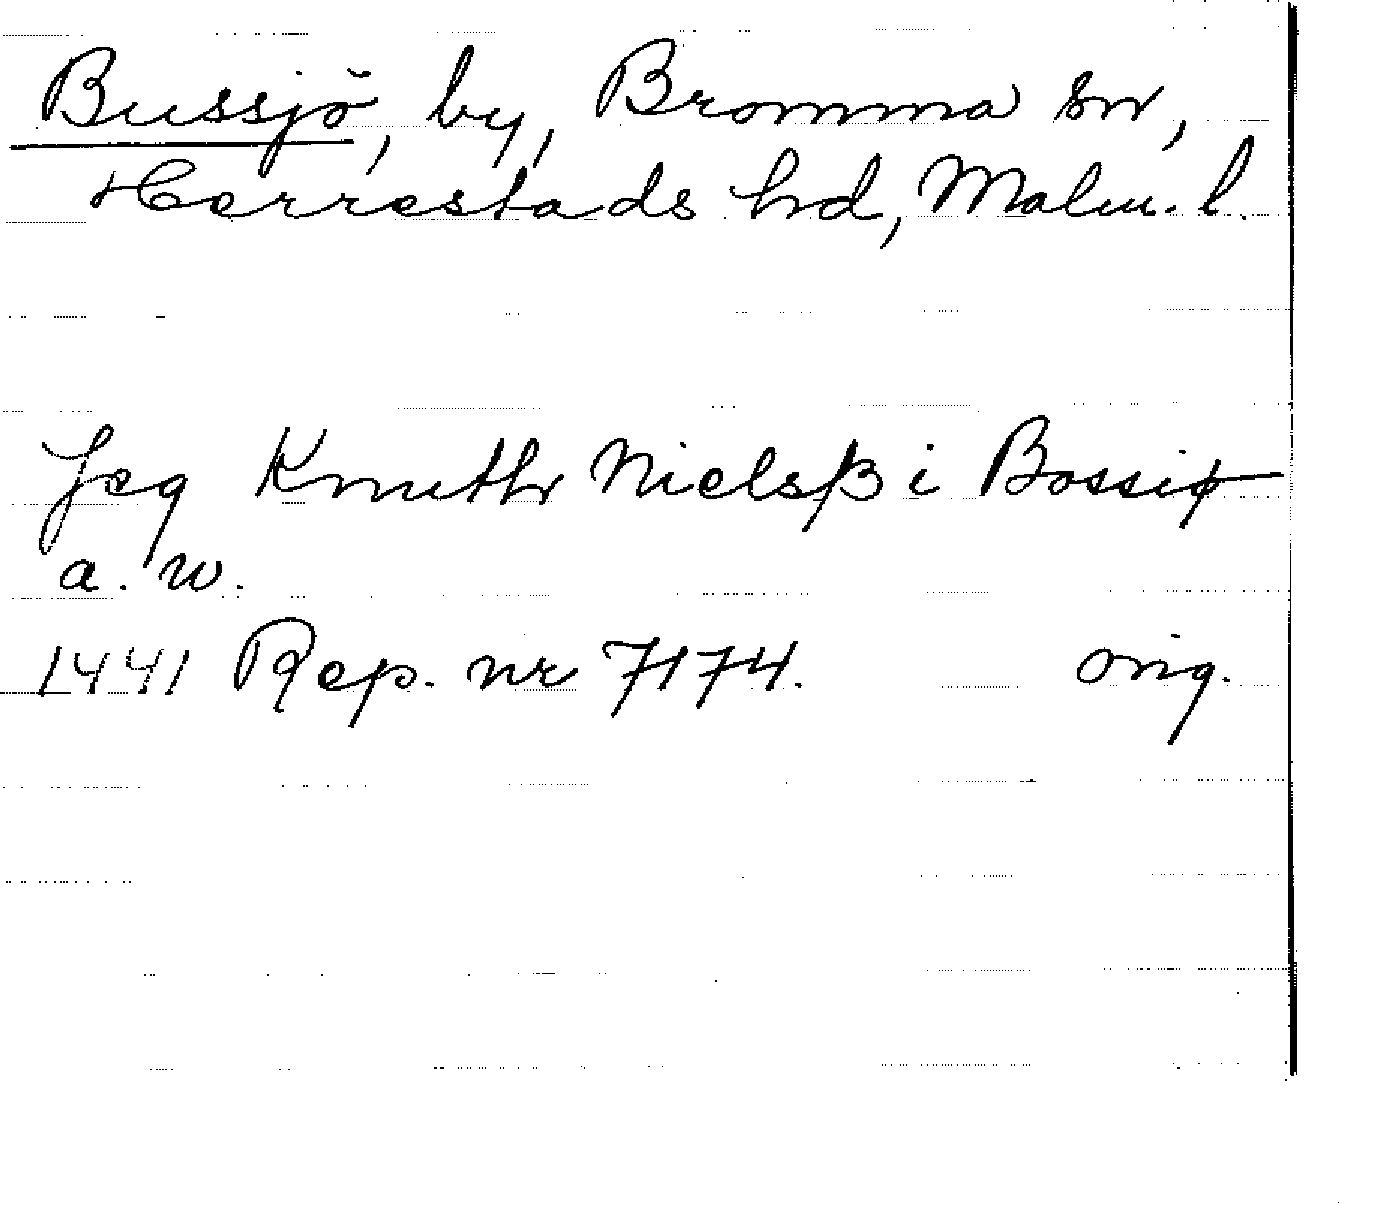 Bussjö, by, Bromma sn,
Herrestads hd, Malm. l.
Jeg Knuth Nielsß i Bossiø
a. w.
1441 Rep. nr 7174. orig.